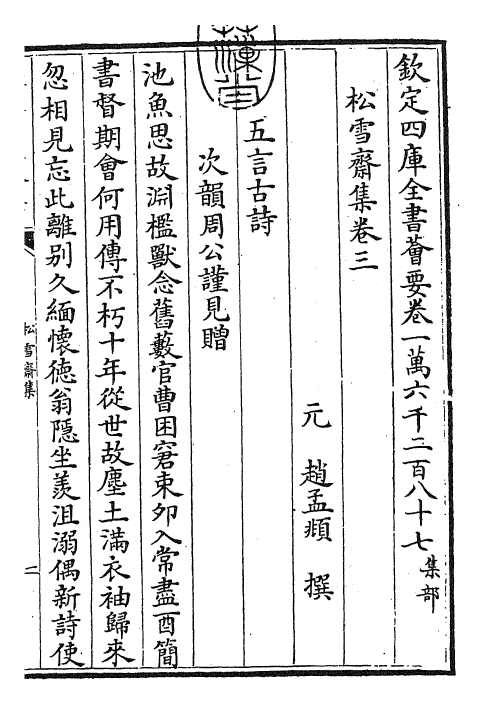 欽定四庫全書薈要卷一萬六千二百八十七集部
松雪齋集卷三
元　趙孟頫　撰
五言古詩
次韻周公謹見贈
池魚思故淵檻獸念舊藪官曹困窘束卯入常盡酉簡
書督期會何用傳不朽十年從世故塵土滿衣袖歸來
忽相見忘此離别久緬懷德翁隱坐羨沮溺偶新詩使
松雪齋集